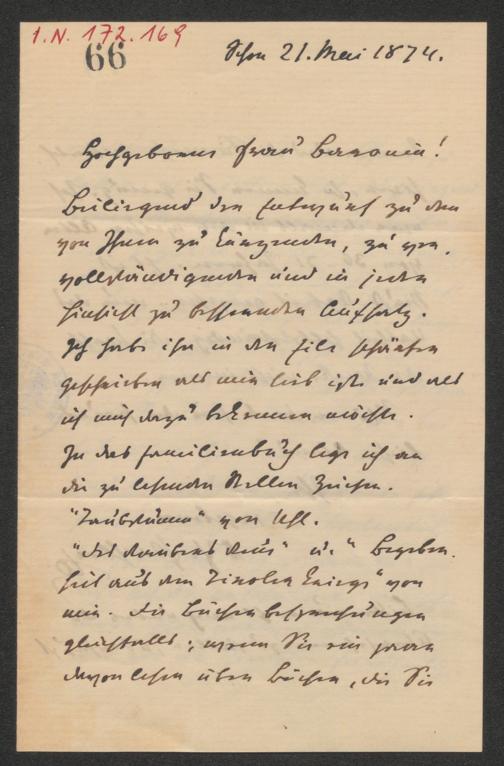 I.N. 172.169
66
21. Mai 1874.
Hochgeborene Frau Baronin!
Beiliegend den Entwurf zu dem
von Ihnen zu kürzenden, zu ver-
vollständigenden und in jeder
Hinsicht zu bessernden Aufsatz.
Ich habe ihn in der Eile schärfer
geschrieben als mir lieb ist und als
ich mich dazu bekennen möchte.
In das Familienbuch lege ich an
die zu lesenden Stellen Zeichen.
" " von Uhl.
"Des Haus" u. " Begeben-
heit aus dem Tiroler Kriege" von
mir. Die Bücherbesprechungen
gleichfalls; wenn Sie ein paar
davon lesen über Bücher, die Sie